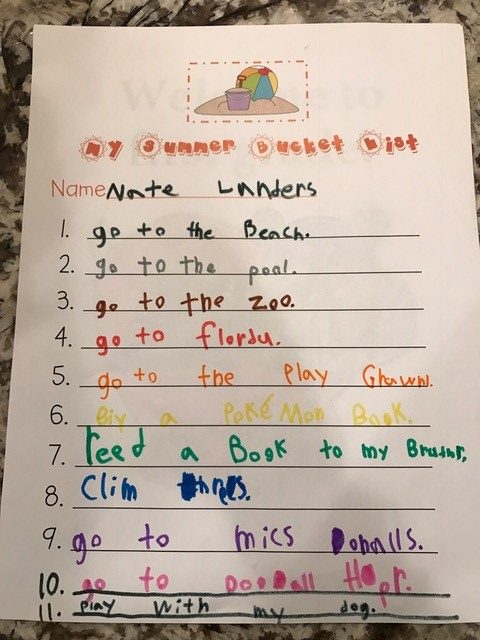 My Summer Bucket List
Name Nate Landers
1. go to the Beach.
2. go to the pool.
3. go to the zoo.
4. go to flordu.
5. go to the Play Ghawnl.
6. Biy a PokéMon Book.
7. reed a Book to my Bruthr.
8. Clim
9. go to mics Donalls.
10. go to DooDall Hopr.
11. play with my dog.